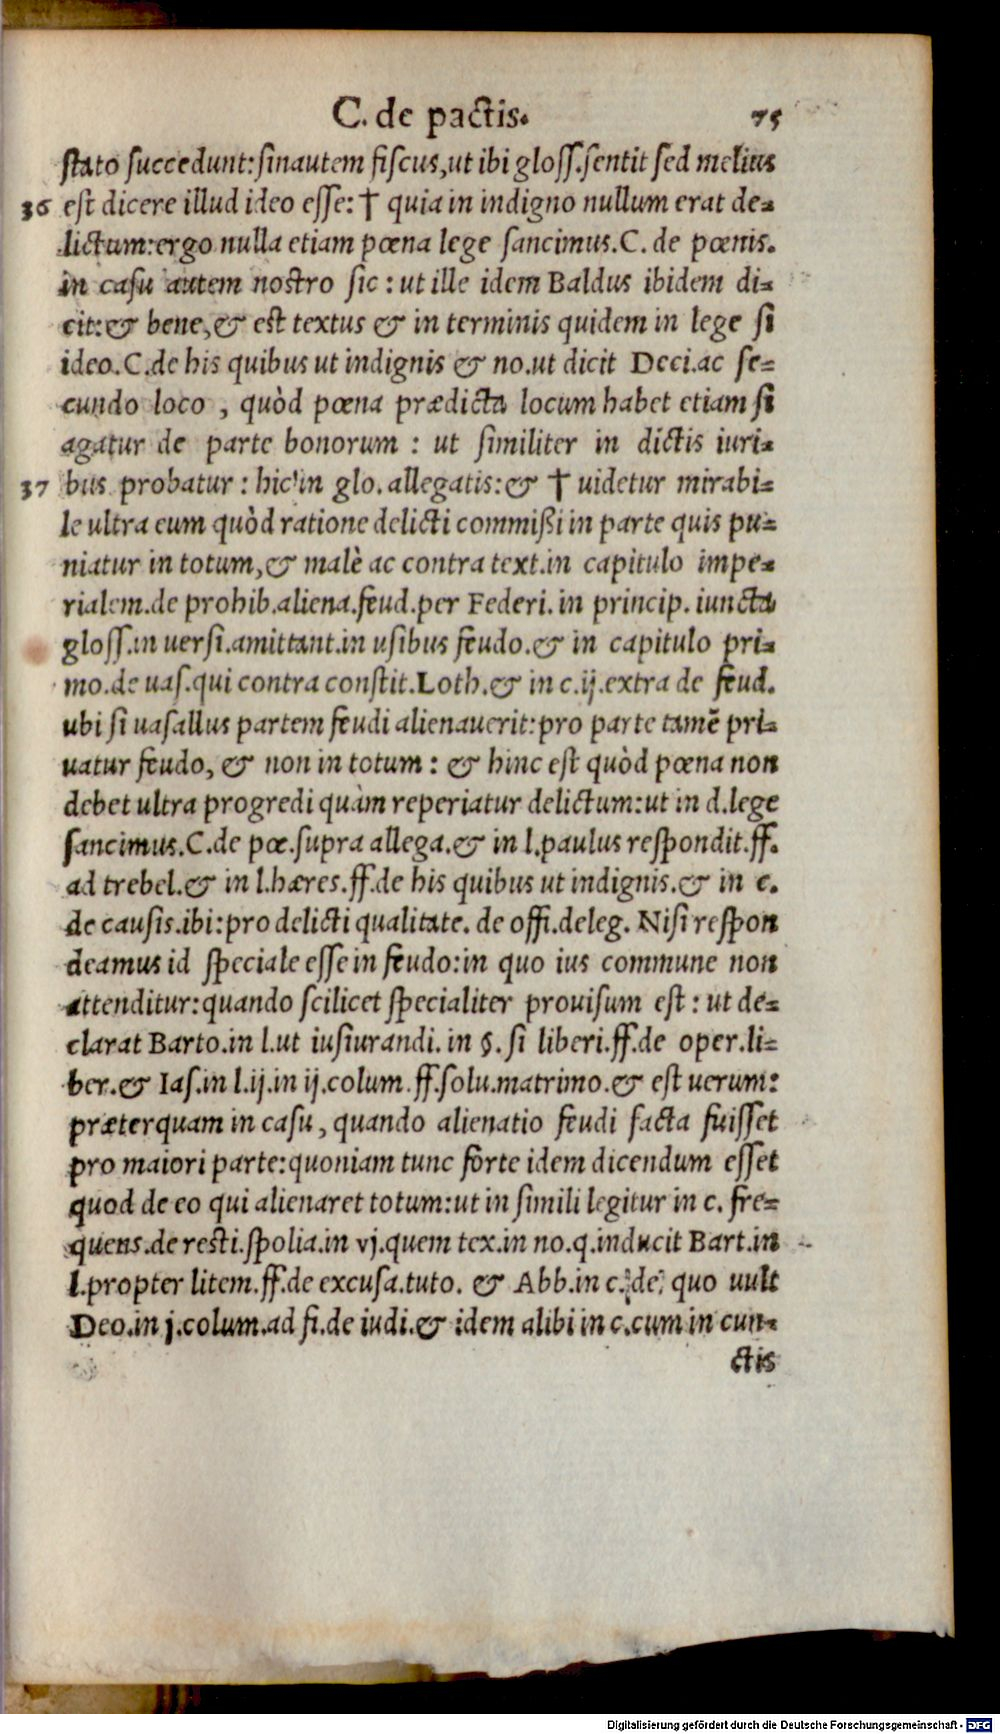 C. de pactis. 75
stato succedunt: sinautem fiscus, ut ibi gloss. sentit sed melius
36 est dicere illud ideo esse: † quia in indigno nullum erat de-
lictum: ergo nulla etiam pœna lege sancimus. C. de pœnis.
in casu autem nostro sic: ut ille idem Baldus ibidem di-
cit: & bene, & est textus & in terminis quidem in lege si
ideo. C. de his quibus ut indignis & no. ut dicit Deci. ac se-
cundo loco, quòd pœna prædicta locum habet etiam si
agatur de parte bonorum: ut similiter in dictis iuri-
37 bus probatur: hic in glo. allegatis: & † uidetur mirabi-
le ultra eum quòd ratione delicti commißi in parte quis pu-
niatur in totum, & malè ac contra text. in capitulo impe-
rialem. de prohib. aliena. feud. per Federi. in princip. iuncta
gloss. in uersi. amittant. in usibus feudo. & in capitulo pri-
mo. de uas. qui contra constit. Loth. & in c. ij. extra de feud.
ubi si uasallus partem feudi alienauerit: pro parte tamē pri-
uatur feudo, & non in totum: & hinc est quòd pœna non
debet ultra progredi quàm reperiatur delictum: ut in d. lege
sancimus. C. de pœ. supra allega. & in l. paulus respondit. ff.
ad trebel. & in l. hæres. ff. de his quibus ut indignis. & in c.
de causis. ibi: pro delicti qualitate. de offi. deleg. Nisi respon
deamus id speciale esse in feudo: in quo ius commune non
attenditur: quando scilicet specialiter prouisum est: ut de-
clarat Barto. in l. ut iusiurandi. in §. si liberi. ff. de oper. li-
ber. & Ias. in l. ij. in ij. colum. ff. solu. matrimo. & est uerum:
præterquam in casu, quando alienatio feudi facta fuisset
pro maiori parte: quoniam tunc forte idem dicendum esset
quod de eo qui alienaret totum: ut in simili legitur in c. fre-
quens. de resti. spolia. in vj. quem tex. in no. q. inducit Bart. in
l. propter litem. ff. de excusa. tuto. & Abb. in c. de quo uult
Deo. in j. colum. ad fi. de iudi. & idem alibi in c. cum in cun-
ctis
Digitalisierung gefördert durch die Deutsche Forschungsgemeinschaft - DFG